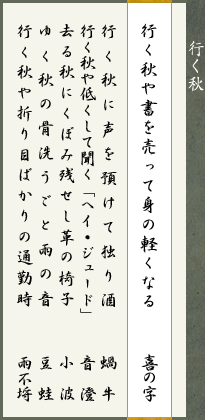 行く秋
行く秋や書を売って身の軽くなる 喜の字
行く秋に声を預けて独り酒 蝸牛
行く秋や低くして聞く「ヘイ・ジュード」 音澄
去る秋にくぼみ残せし革の椅子 小波
ゆく秋の骨洗うごと雨の音 豆蛙
行く秋や折り目ばかりの通勤時 雨不埒